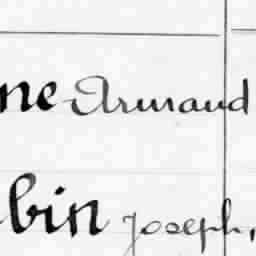 ne Armand
bin Joseph,